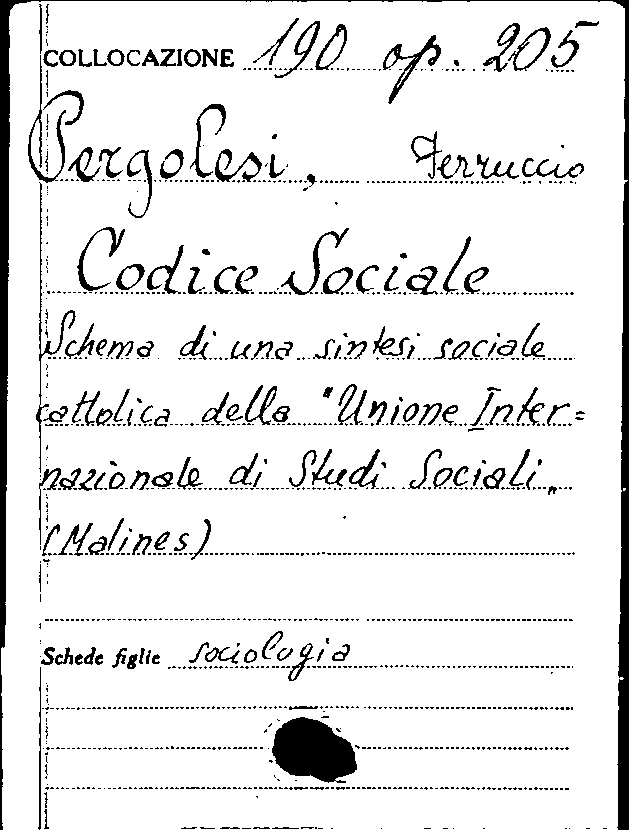 COLLOCAZIONE 190 op. 205
Pergolesi, Ferruccio
Codice Sociale
Schema di una sintesi sociale
cattolica della "Unione Inter=
nazionale di Studi Sociali„
(Malines)
Schede figlie sociologia